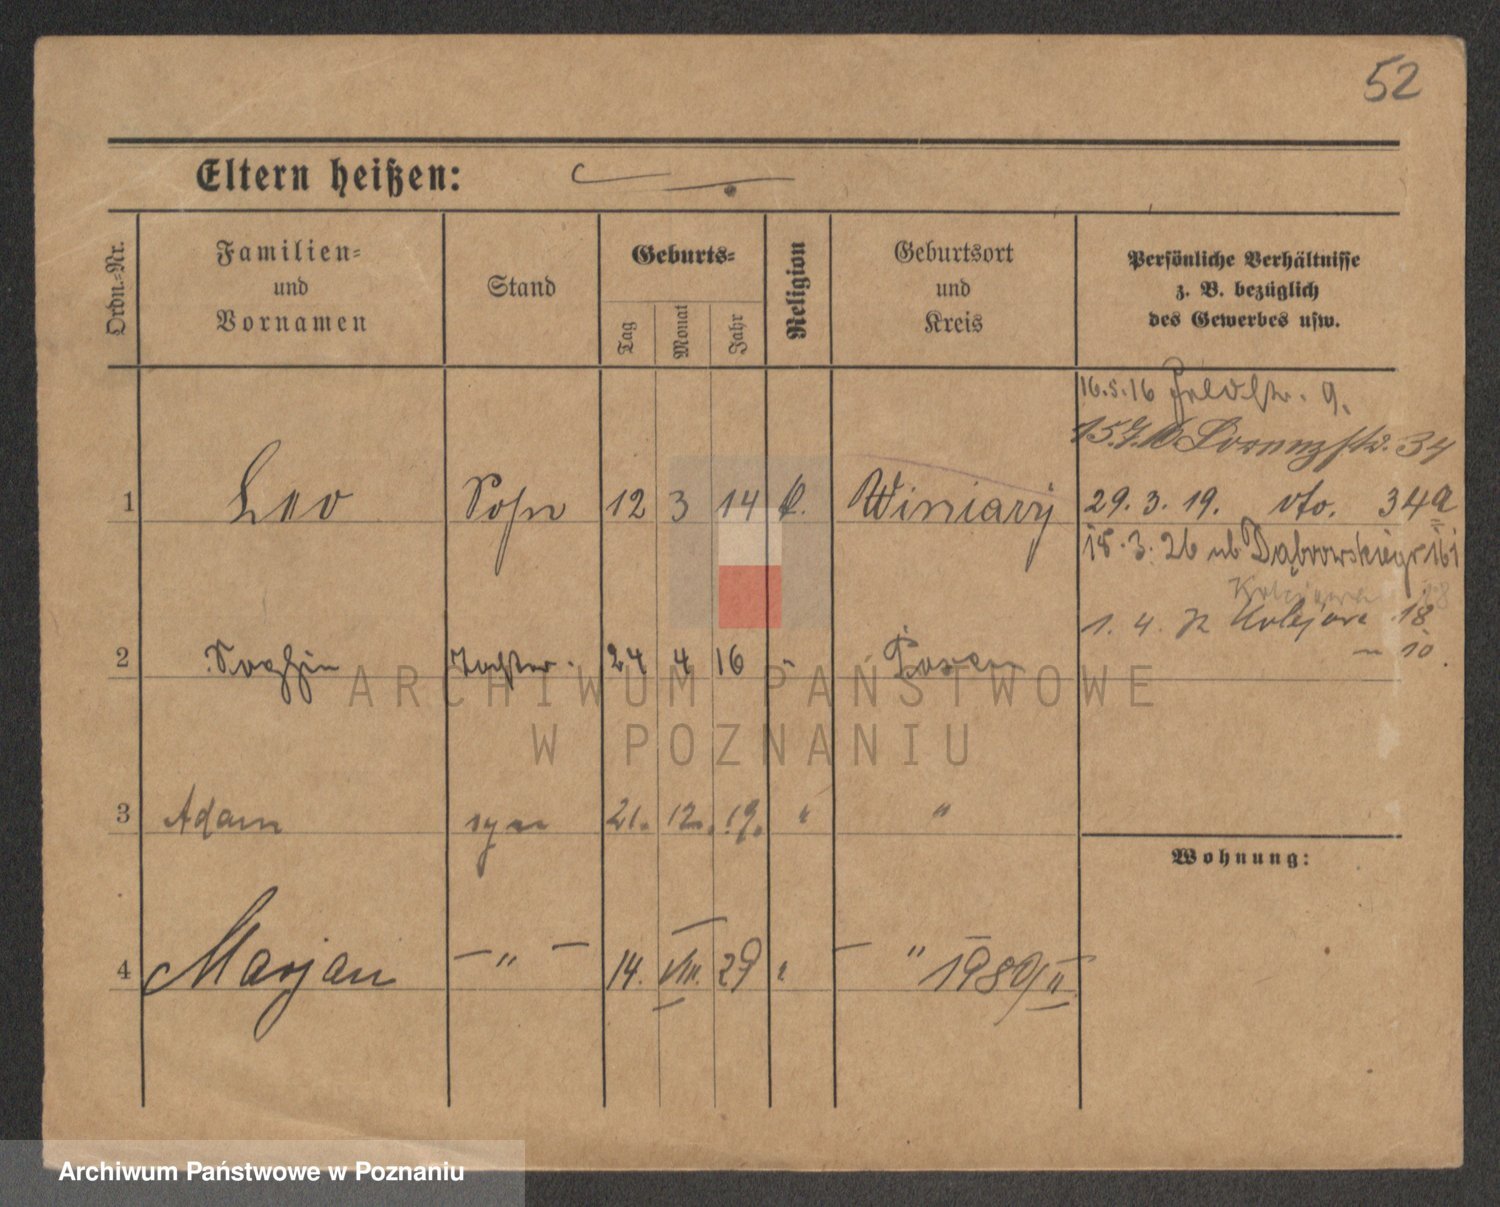 52
Eltern heißen:
Ordn.-Nr.
Familien-
und
Vornamen
Stand
Geburts-
Tag
Monat
Jahr
Religion
Geburtsort
und
Kreis
Persönliche Verhältnisse
z. B. bezüglich
des Gewerbes usw.
16.5.16 Feldstr. 9.
Lorenzstr. 34
1 Leo Sohn 12 3 14 k. Winiary 29. 3. 19. dto. 34a
18. 3. 26 ul. Dąbrowskiego 161
1. 4. Kolejowa 18
10
2 Sophie Tochter. 24 4 16 " Posen
3 Adam syn 21. 12. 19. " "
Wohnung:
4 Marjan — " — 14. VIII. 29 " — " —
ARCHIWUM PAŃSTWOWE
W POZNANIU
Archiwum Państwowe w Poznaniu